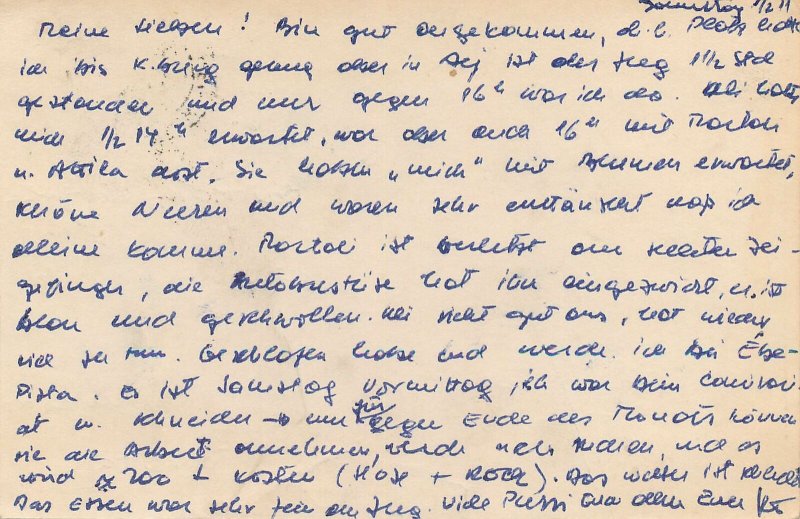 Samstag 1/2 11
Meine Lieben! Bin gut angekommen, d.h. Platz hatte
ich bis genug aber in ist der Zug 1 1/2 Std
gestanden und nur gegen 16h war ich da. hatte
mich 1/2 14h erwartet, war aber auch 16h mit
u. Attila dort. Sie haben "mich" mit Blumen erwartet,
schöne und waren sehr enttäuscht daß ich
alleine komme. ist verletzt am rechten Zei-
gefinger, die hat ihn eingezwickt, u. ist
blau und geschwollen. sieht gut aus, hat wieder
viel zu tun. Geschlafen habe und werde ich bei
Pista. Es ist Samstag Vormittag, ich war beim
at u. Schneider → nur für gegen Ende des Monats können
sie die Arbeit annehmen, werde noch suchen, und es
wird ≈ 700 kosten (Hose + Rock). Das Wetter ist
Das Essen war sehr fein im Zug. Viele Pussi